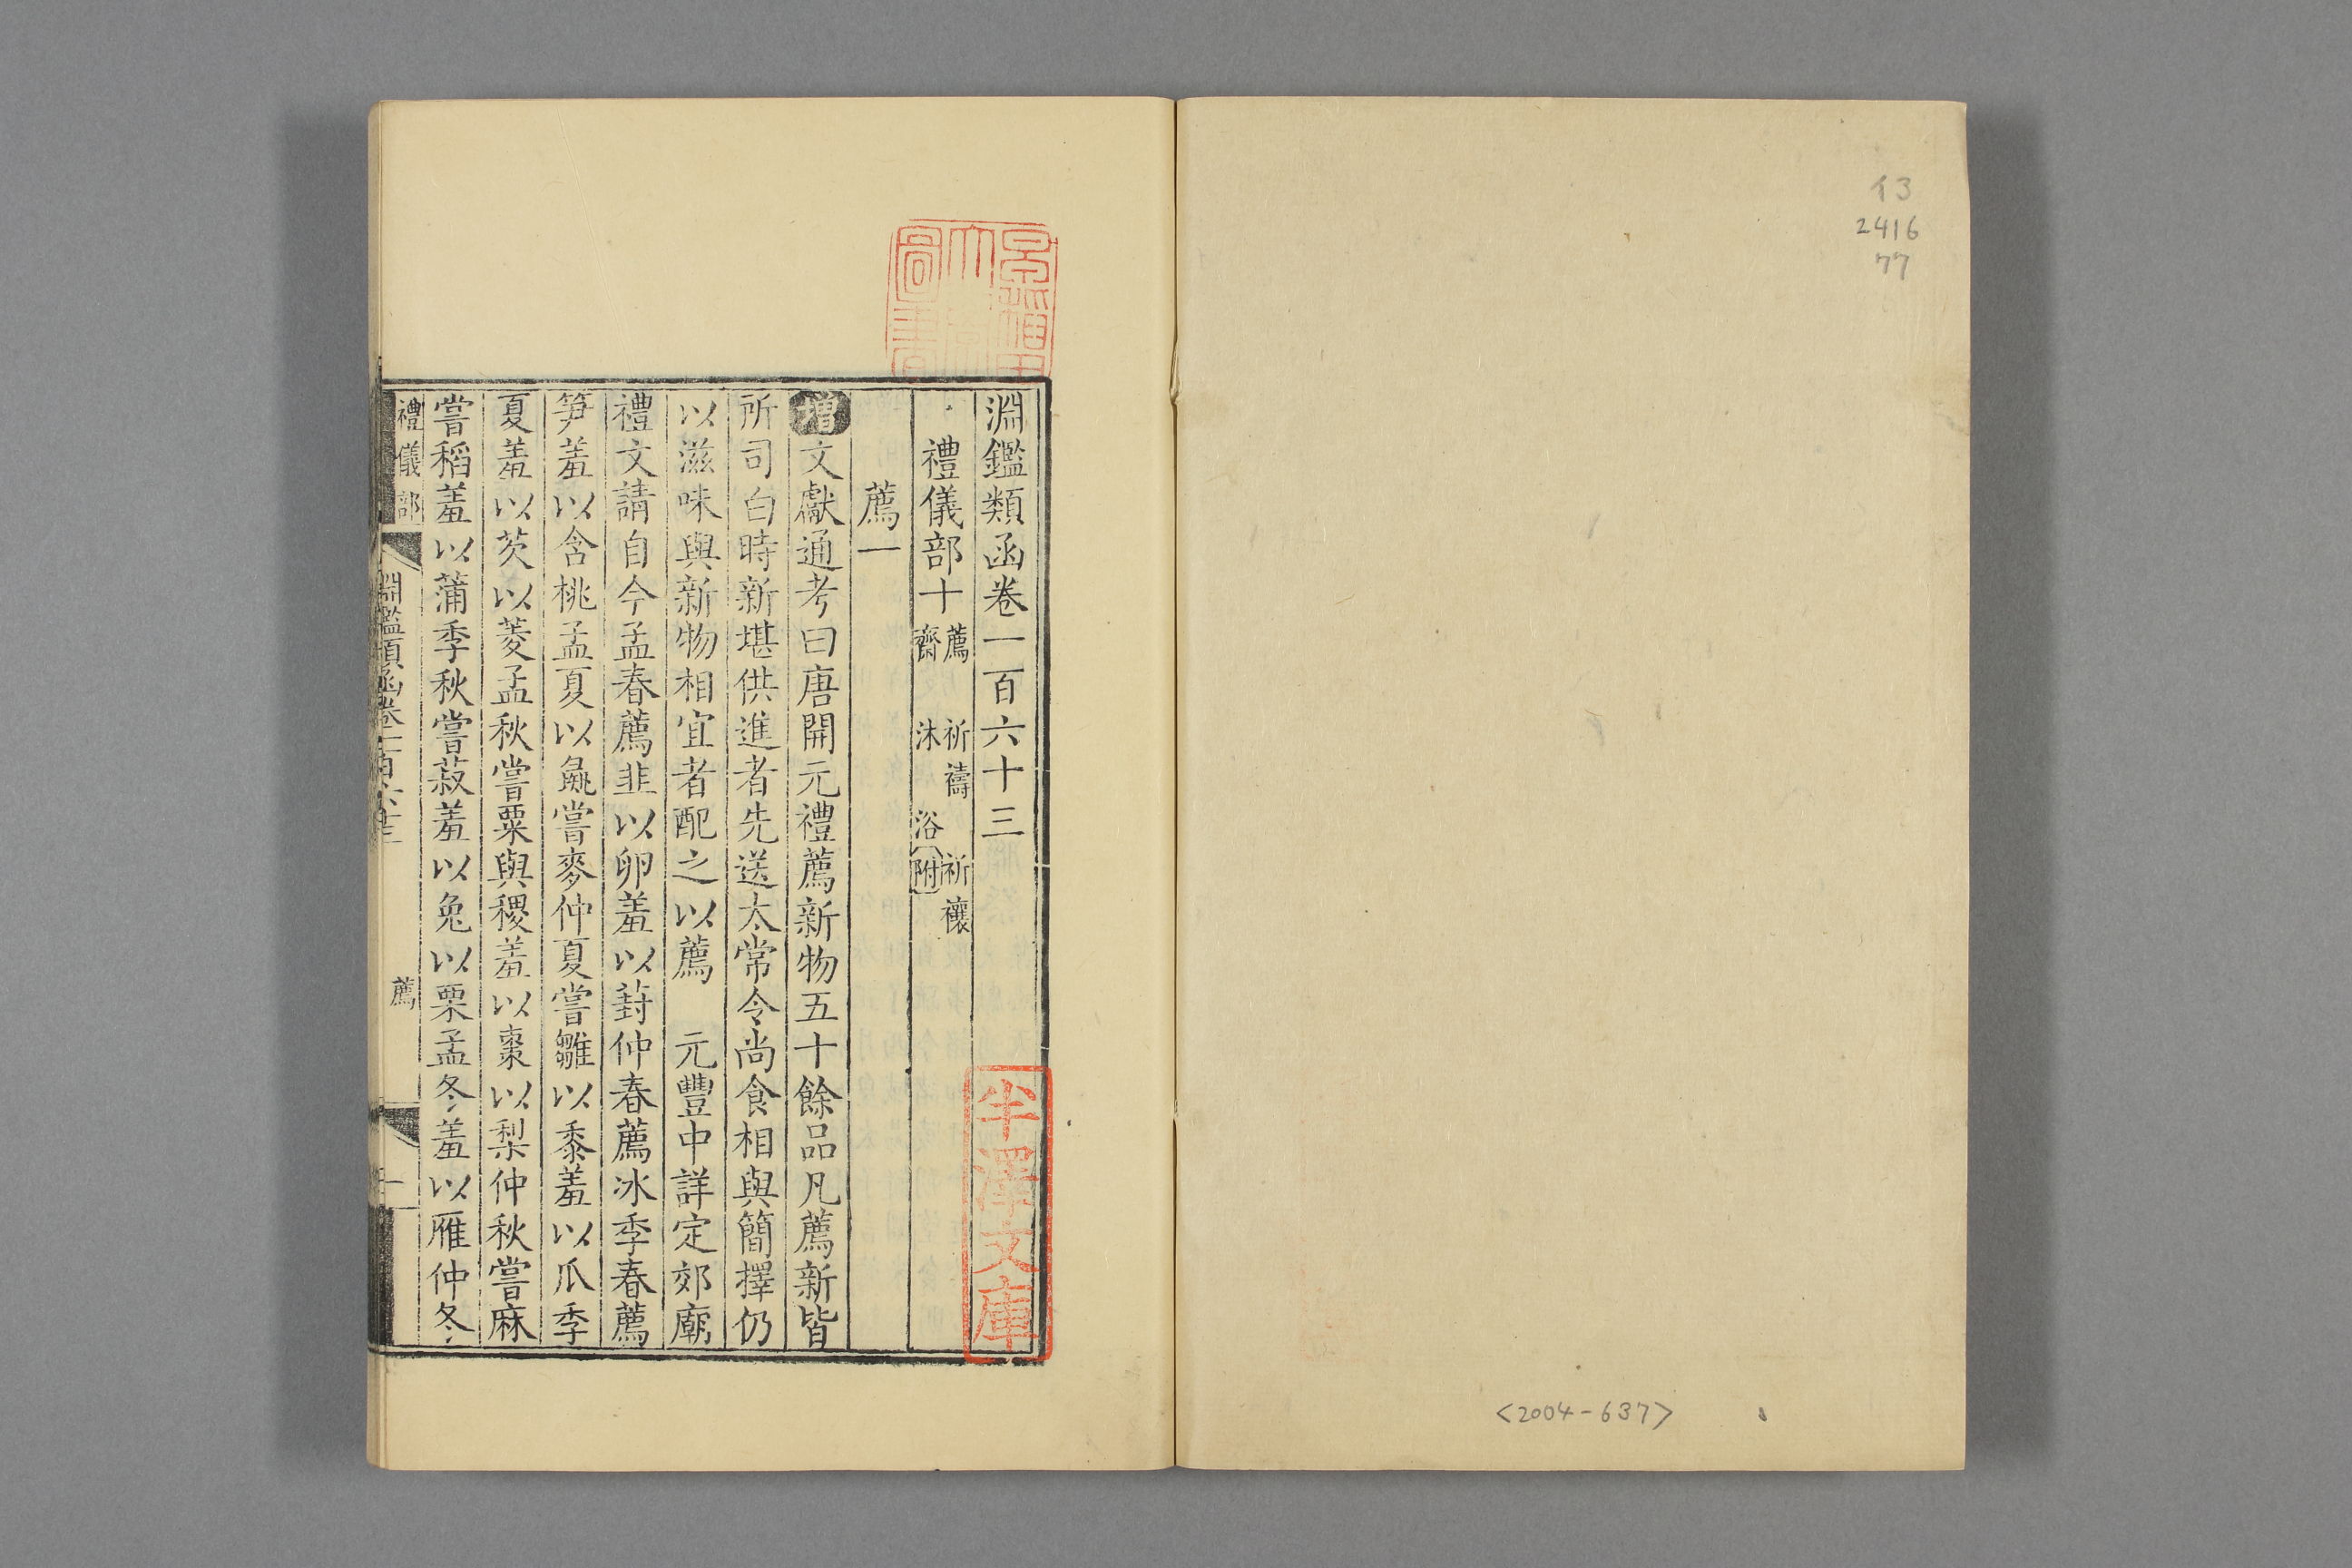 イ3
2416
77
<2004-637>
早稲田
大學
圖書
淵鑑類函卷一百六十三
禮儀部十
薦 祈禱 祈禳
齋 沐 浴附
薦一
增文獻通考曰唐開元禮薦新物五十餘品凡薦新皆
所司白時新堪供進者先送太常令尚食相與簡擇仍
以滋味與新物相宜者配之以薦 元豐中詳定郊廟
禮文請自今孟春薦韭以卵羞以葑仲春薦冰季春薦
笋羞以含桃孟夏以彘嘗麥仲夏嘗雛以黍羞以瓜季
夏羞以芡以菱孟秋嘗粟與稷羞以棗以梨仲秋嘗麻
嘗稻羞以蒲季秋嘗菽羞以兔以栗孟冬羞以雁仲冬
禮儀部
淵鑑類函卷一百六十三
薦
一
半澤文庫